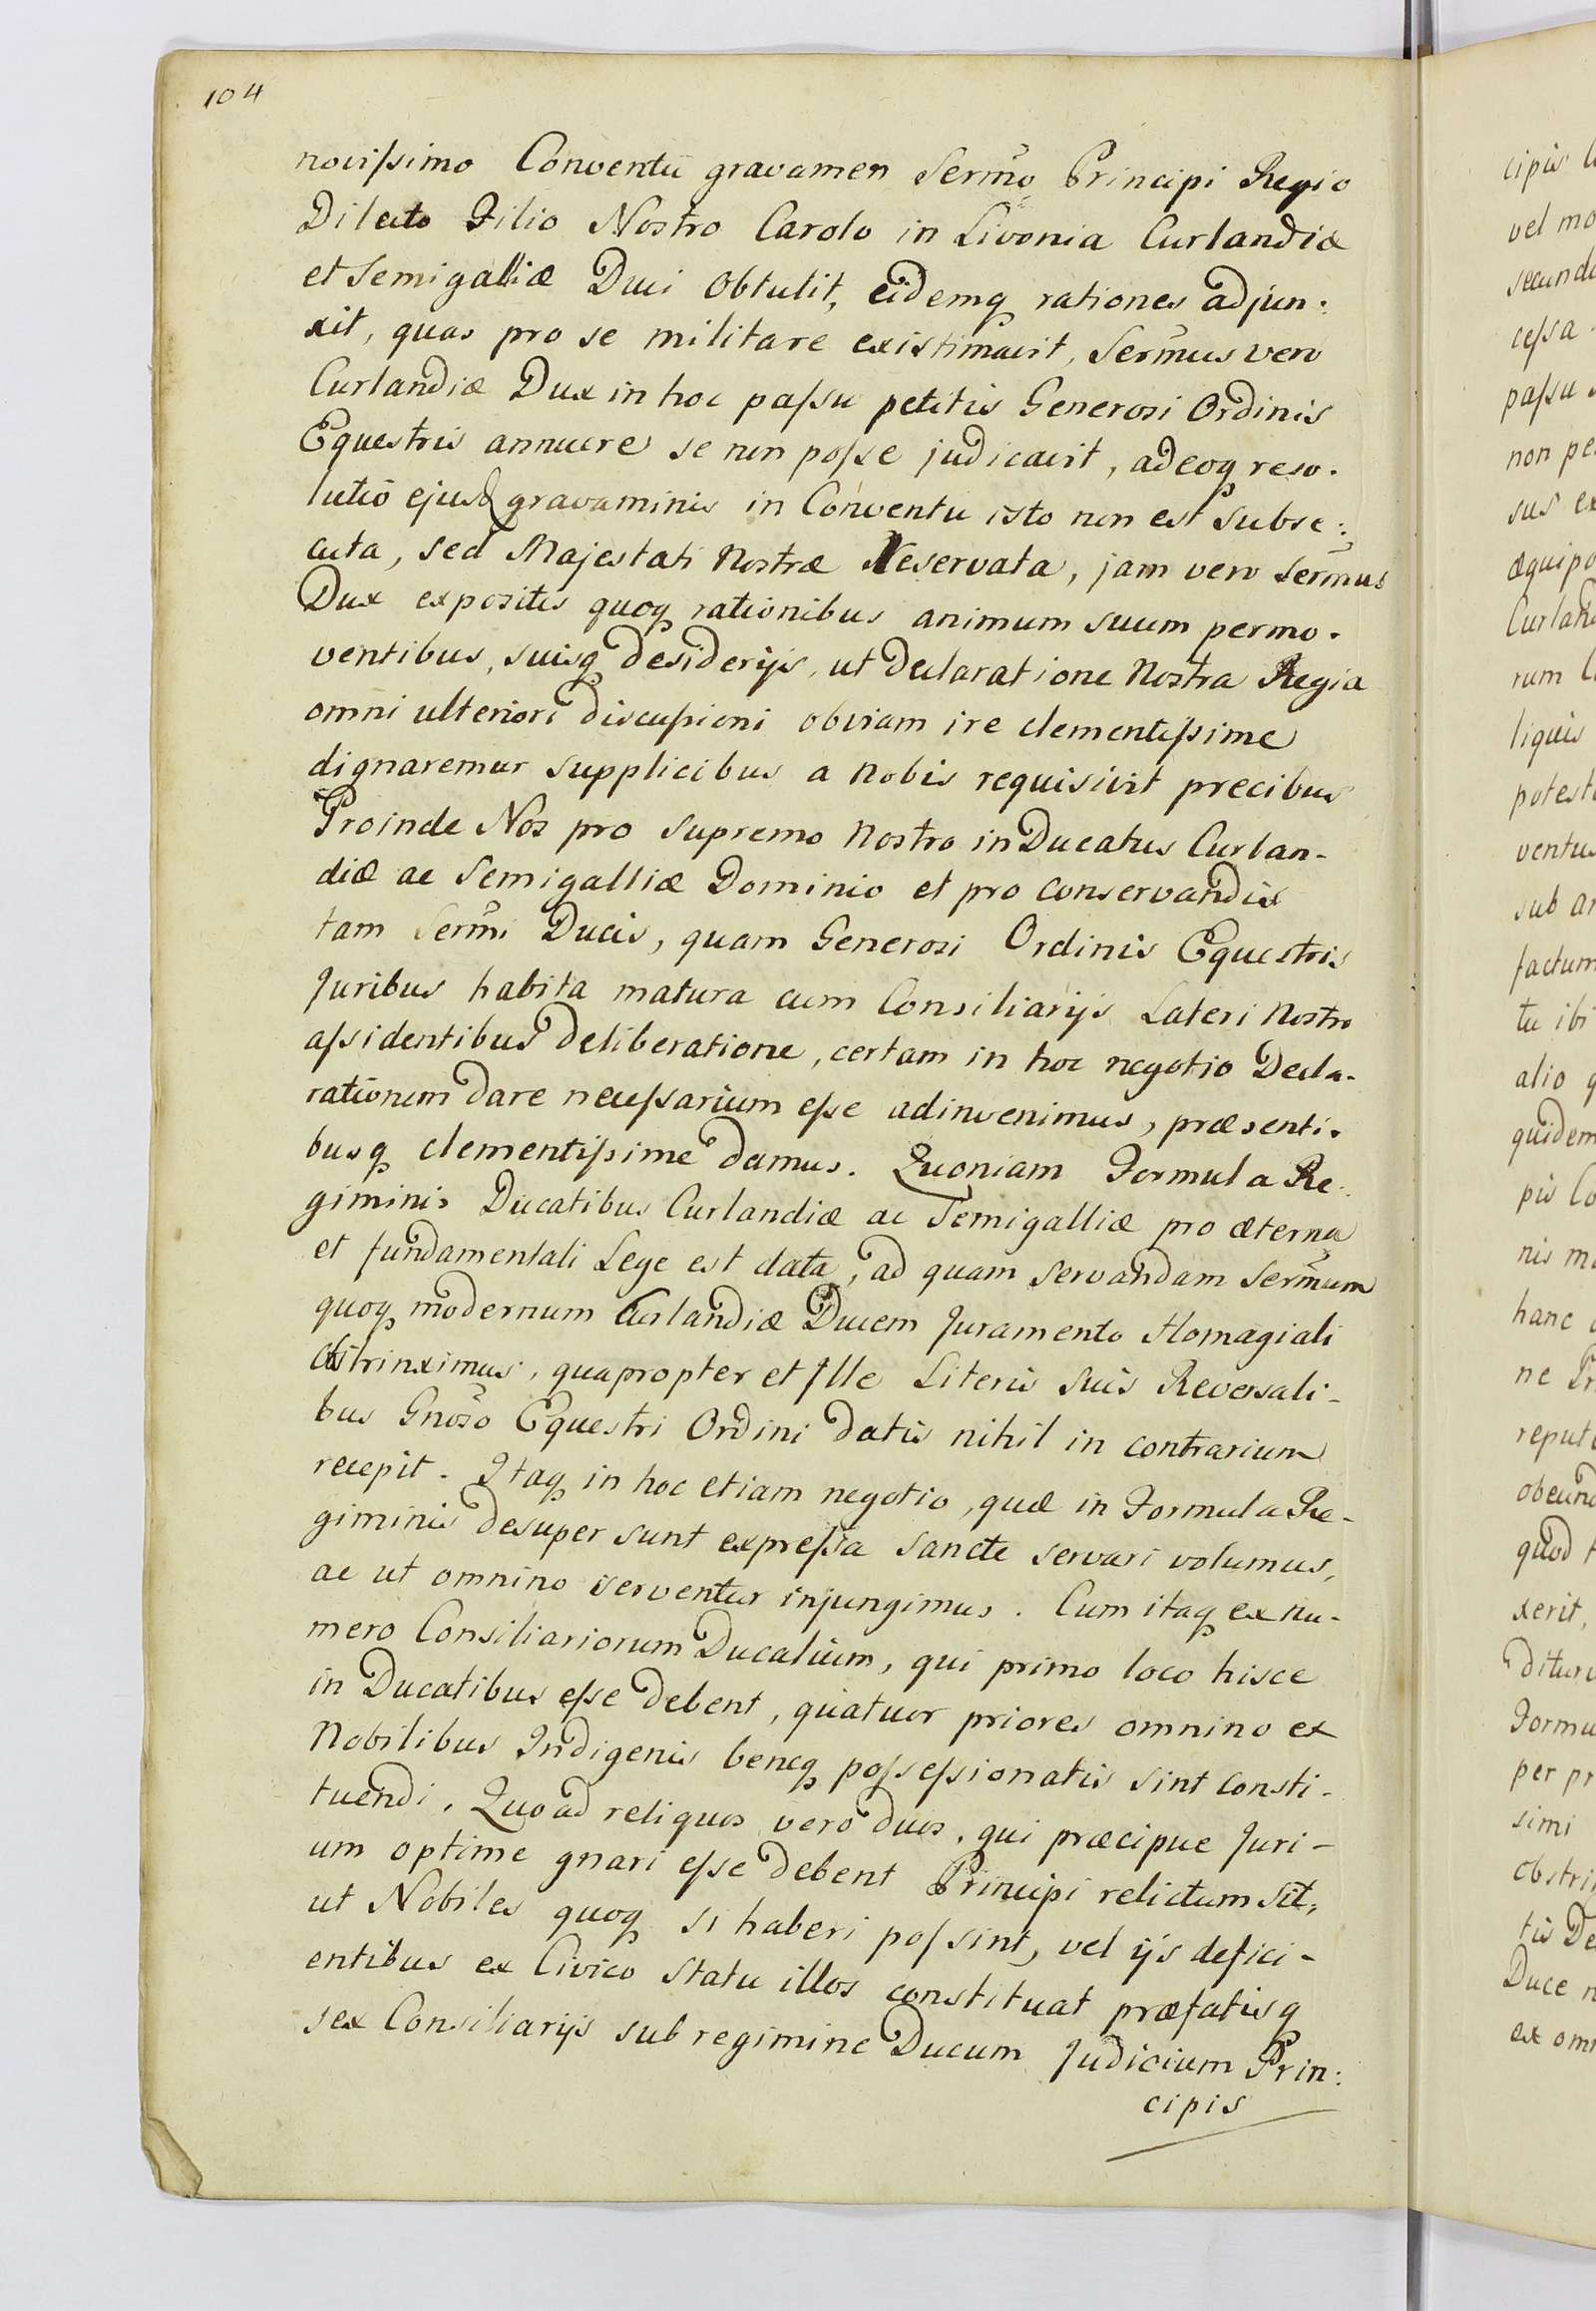 104
novissimo Conventu gravamen Sermo Principi Regio
Dilecto Filio Nostro Carolo in Livonia Curlandiæ
et Semigalliæ Duci obtulit, eidemq rationes adjun:
xit, quas pro se militare existimavit, Sermus vero
Curlandiæ Dux in hoc passu petitis Generosi Ordinis
Equestris annuere se non posse judicavit, adeoq reso-
lutio ejusd gravaminis in Conventu isto non est subse:
cuta, sed Majestati Nostræ Reservata, jam vero Sermus
Dux expositis quoq rationibus animum suum permo-
ventibus, suisq desiderijs, ut Declaratione Nostra Regia
omni ulteriori discussioni obviam ire clementissime
dignaremur supplicibus a Nobis requisivit precibus
Proinde Nos pro Supremo Nostro in Ducatus Curlan-
diæ ac Semigalliæ Dominio et pro conservandis
tam Sermi Ducis, quam Generosi Ordinis Equestris
Juribus habita matura cum Consiliarijs Lateri Nostro
assidentibus deliberatione, certam in hoc negotio Decla-
rationem dare necessarium esse adinvenimus, præsenti-
busq clementissime damus. Quoniam Formula Re-
giminis Ducatibus Curlandiæ ac Semigalliæ pro æterna
et fundamentali Lege est data, ad quam servandam Sermum
quoq modernum Curlandiæ Ducem Juramento Homagiali
obstrinximus, quapropter et Ille Literis suis Reversali-
bus Gnoso Equestri Ordini datis nihil in contrarium
recepit. Itaq in hoc etiam negotio, quæ in Formula Re-
giminis desuper sunt expressa sancte servari volumus,
ac ut omnino serventur injungimus. Cum itaq ex nu-
mero Consiliariorum Ducalium, qui primo loco hisce
in Ducatibus esse debent, quatuor priores omnino ex
Nobilibus Indigenis beneq possessionatis sint consti-
tuendi. Quoad reliquos vero duos, qui præcipue Juri-
um optime gnari esse debent Principi relictum sit,
ut Nobiles quoq si haberi possint, vel ijs defici-
entibus ex Civico statu illos constituat præfatisq
sex Consiliarijs sub regimine Ducum Judicium Prin:
cipis
cipis
vel mo
secund
cessa
passu
non pe
sus ex
æquipo
Curlan
rum
liquis
potest
ventus
sub ar
factum
tu ibi
alio q
quidem
pis Co
nis m
hanc
ne Pr
reput
obeund
quod
xerit,
ditur
Formu
per pr
simi
obstri
tis De
Duce n
ex omn